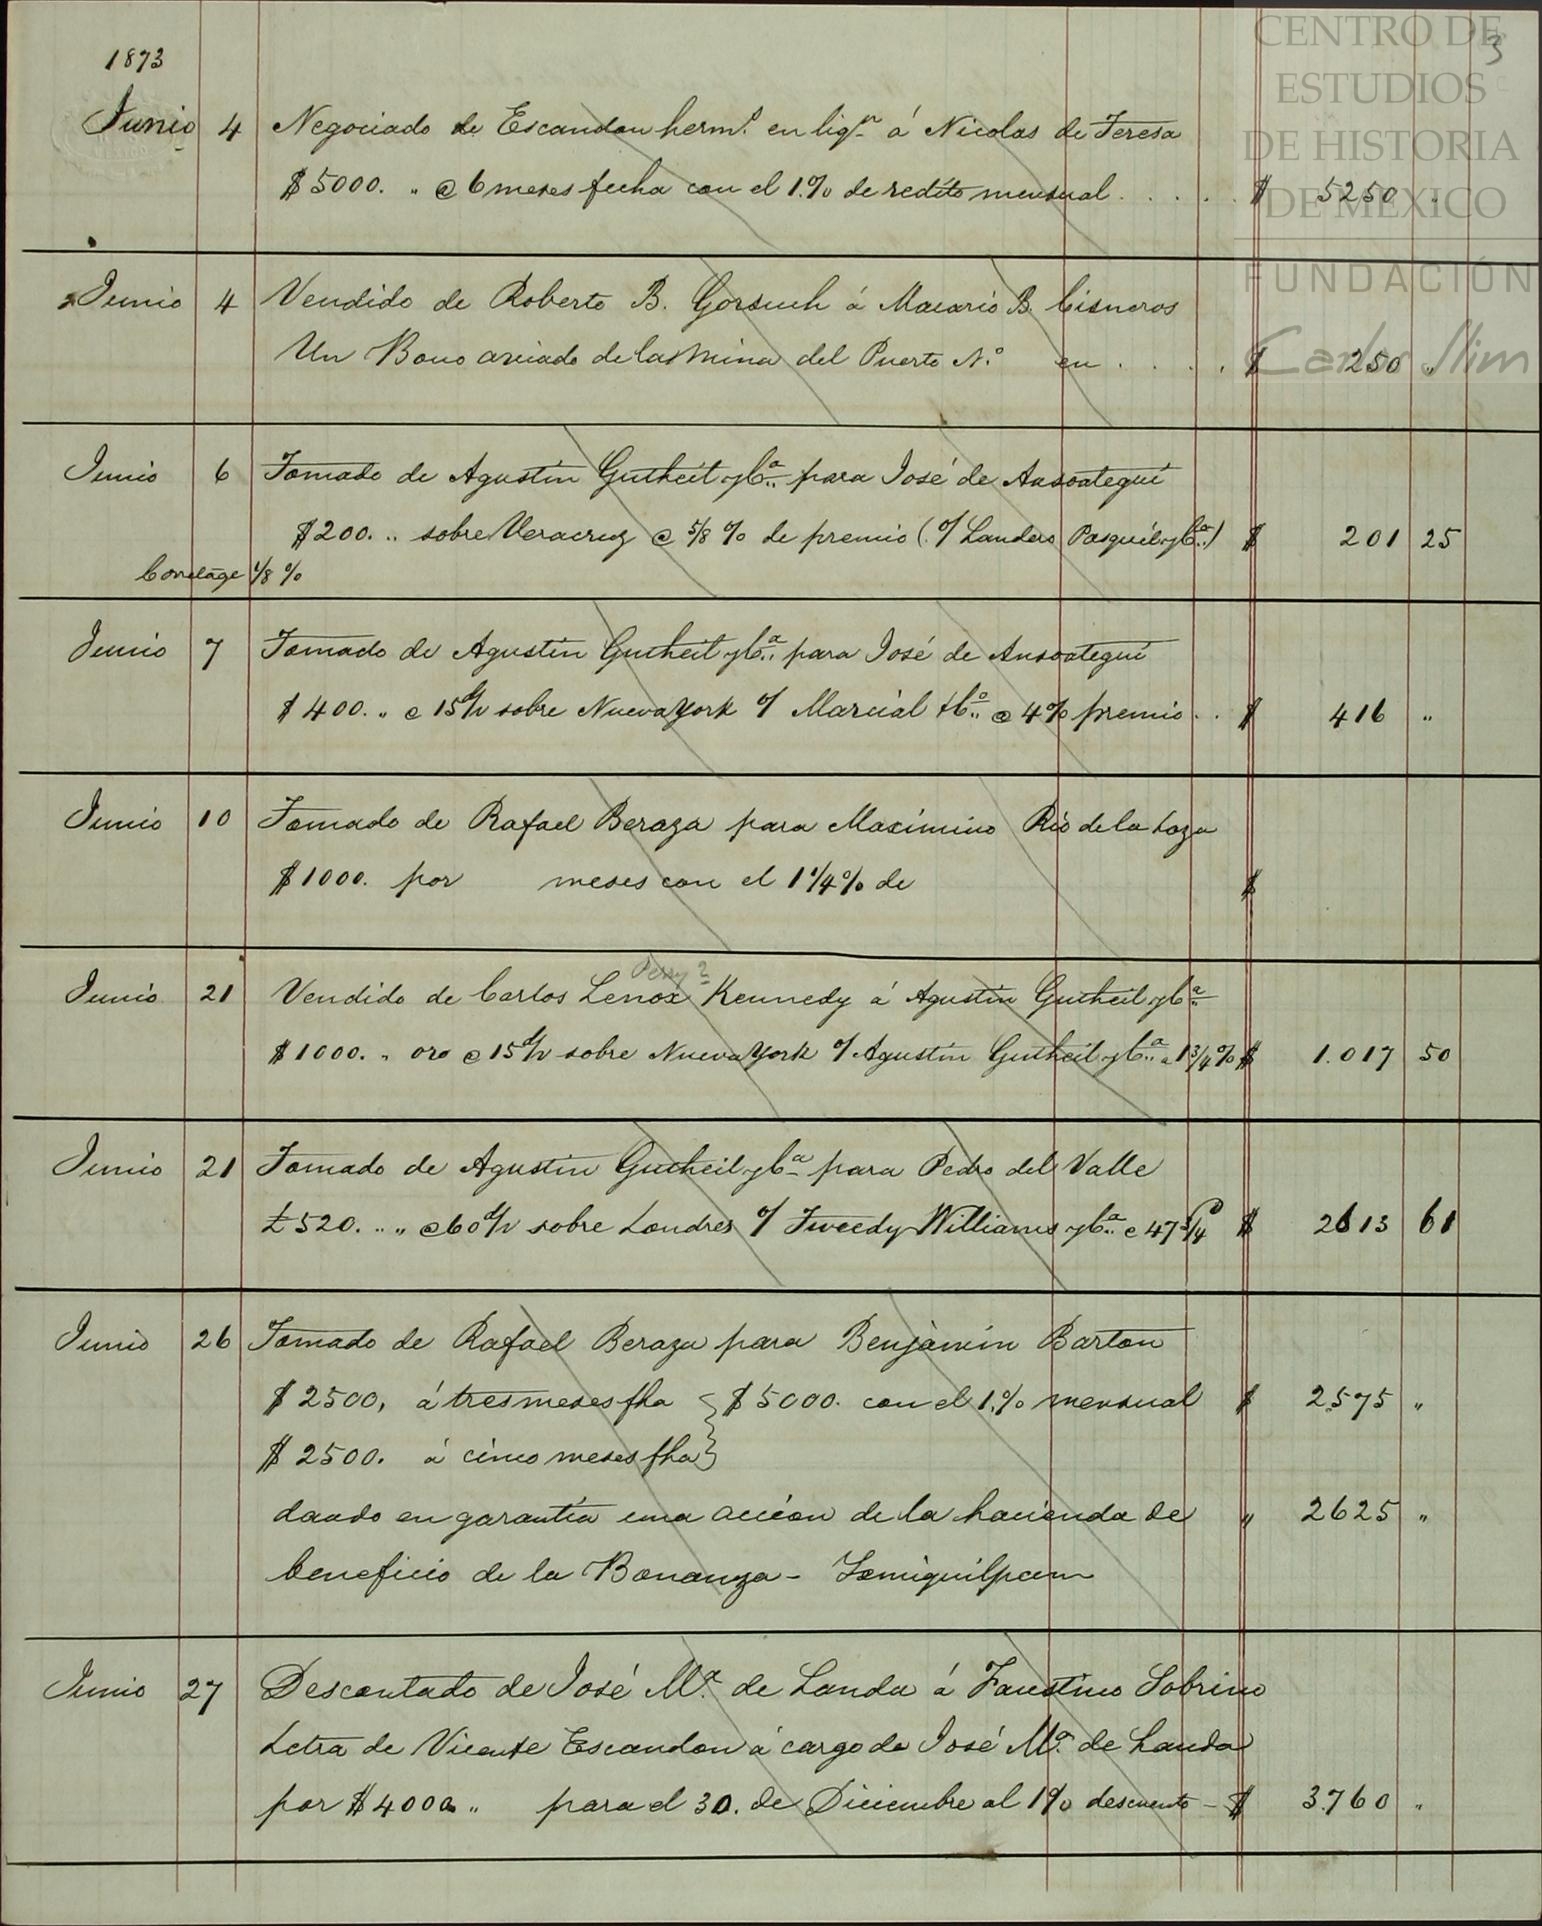 CENTRO DE
ESTUDIOS
DE HISTORIA
DE MÉXICO
FUNDACIÓN
Carlos Slim
3
1873
Junio 4 Negociado de Escandon herms. en liqn. á Nicolas de Teresa
$ 5000. „ @ 6 meses fecha con el 1.% de redito mensual . . . . . $ 5250 „
Junio 4 Vendido de Roberto B. Gorsuch á Macario B. Cisneros
Un Bono aviado de las Mina del Puerto N.º en . . . . $ 250 „
Junio 6 Tomado de Agustin Gutheil y Ca. para José de Ansoategui
$ 200. „ sobre Veracruz @ 5/8 % de premio (c/ Landero Pasquel y Ca.) $ 201 25
Corretage 1/8 %
Junio 7 Tomado de Agustin Gutheil y Ca. para José de Ansoategui
$ 400. „ @ 15 d/v sobre Nueva York c/ Marcial & Co. @ 4% premio . . $ 416 „
Junio 10 Tomado de Rafael Beraza para Maximino Rio de la Loza
$ 1000. por meses con el 1 1/4 % de $
Perry?
Junio 21 Vendido de Carlos Lenox Kennedy á Agustin Gutheil y Ca.
$ 1000. „ oro @ 15 d/v sobre Nueva York c/ Agustin Gutheil y Ca. a 1 3/4 % $ 1.017 50
Junio 21 Tomado de Agustin Gutheil y Ca. para Pedro del Valle
£ 520. „ „ @ 60 d/v sobre Londres c/ Tweedy Williams y Ca. @ 47 3/4 $ 2613 61
Junio 26 Tomado de Rafael Beraza para Benjamin Barton
$ 2500, á tres meses fha } $ 5000. con el 1.% mensual $ 2575 „
$ 2500. á cinco meses fha
dando en garantia una accion de la hacienda de „ 2625 „
beneficio de la Bonanza - Ixmiquilpam
Junio 27 Descontado de José Ma. de Landa á Faustino Sobrino
Letra de Vicente Escandon á cargo de José Ma. de Landa
por $ 4000 „ para el 30. de Diciembre al 1% descuento - $ 3.760 „